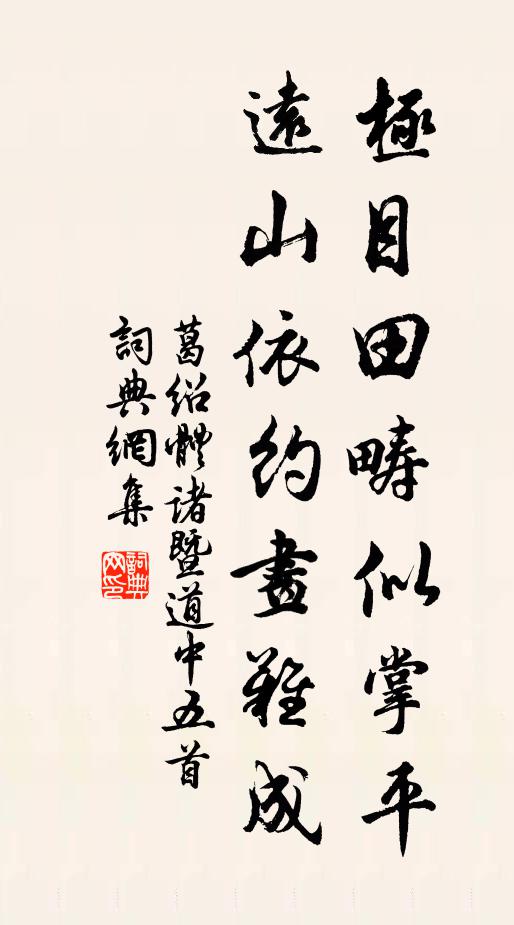 極目田疇似掌平
遠山依約畫難成
葛紹體諸暨道中五首
詞典網集
詞典網印